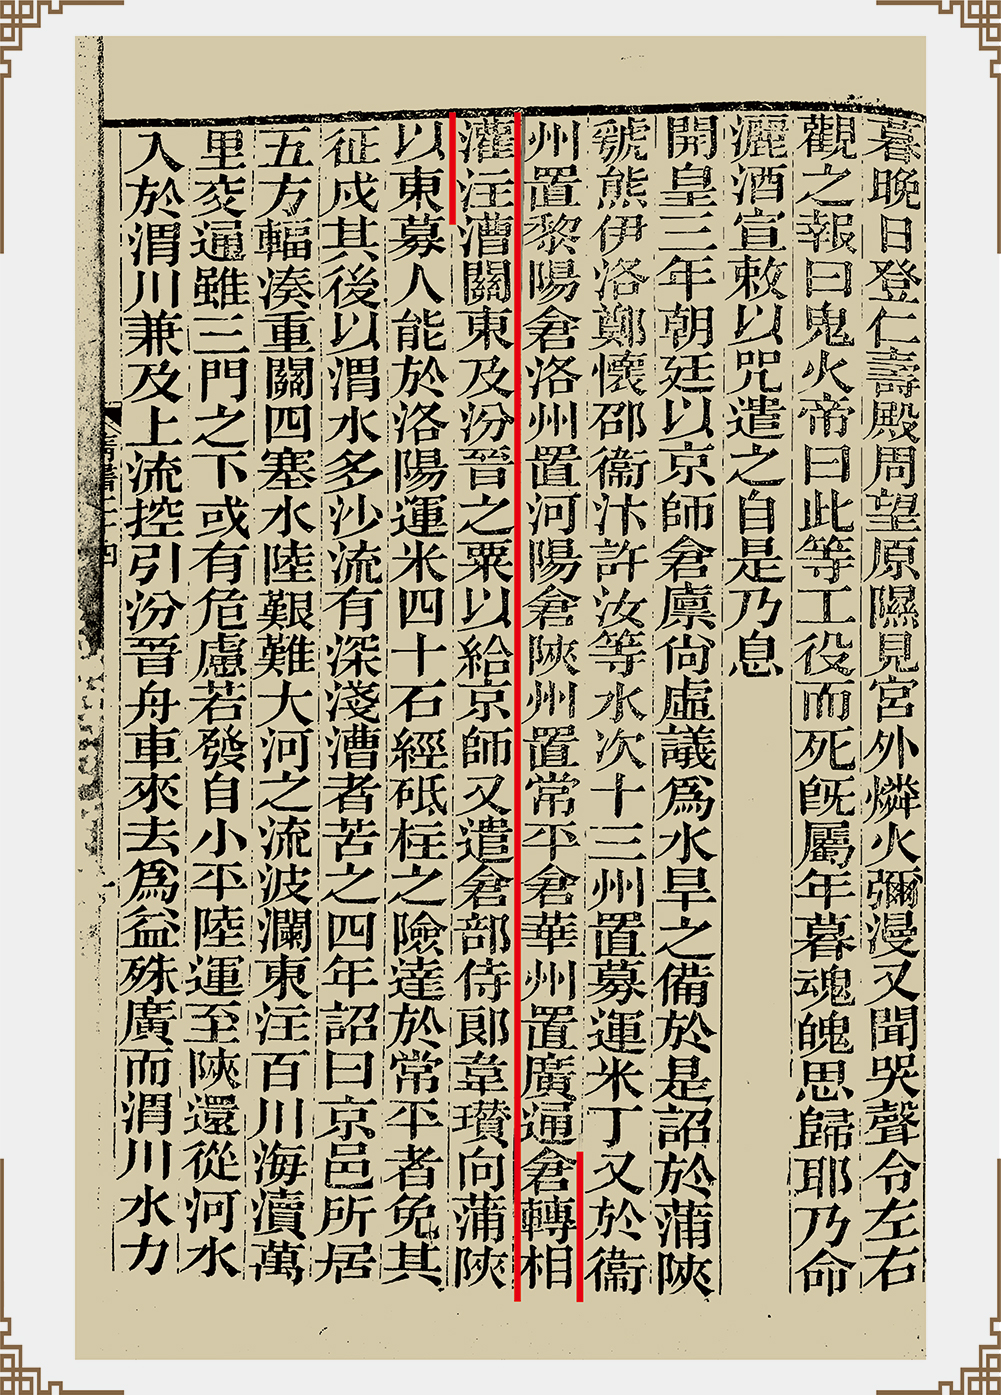 暮晚日登仁壽殿周望原隰見宮外燐火彌漫又聞哭聲令左右
觀之報曰鬼火帝曰此等工役而死旣屬年暮魂魄思歸耶乃命
灑酒宣敕以咒遣之自是乃息
開皇三年朝廷以京師倉廩尙虛議爲水旱之備於是詔於蒲陝
虢熊伊洛鄭懷邵衞汴許汝等水次十三州置募運米丁又於衞
州置黎陽倉洛州置河陽倉陝州置常平倉華州置廣通倉轉相
灌注漕關東及汾晉之粟以給京師又遣倉部侍郞韋瓚向蒲陝
以東募人能於洛陽運米四十石經砥柱之險達於常平者免其
征戍其後以渭水多沙流有深淺漕者苦之四年詔曰京邑所居
五方輻湊重關四塞水陸艱難大河之流波瀾東注百川海瀆萬
里交通雖三門之下或有危慮若發自小平陸運至陝還從河水
入於渭川兼及上流控引汾晉舟車來去爲益殊廣而渭川水力